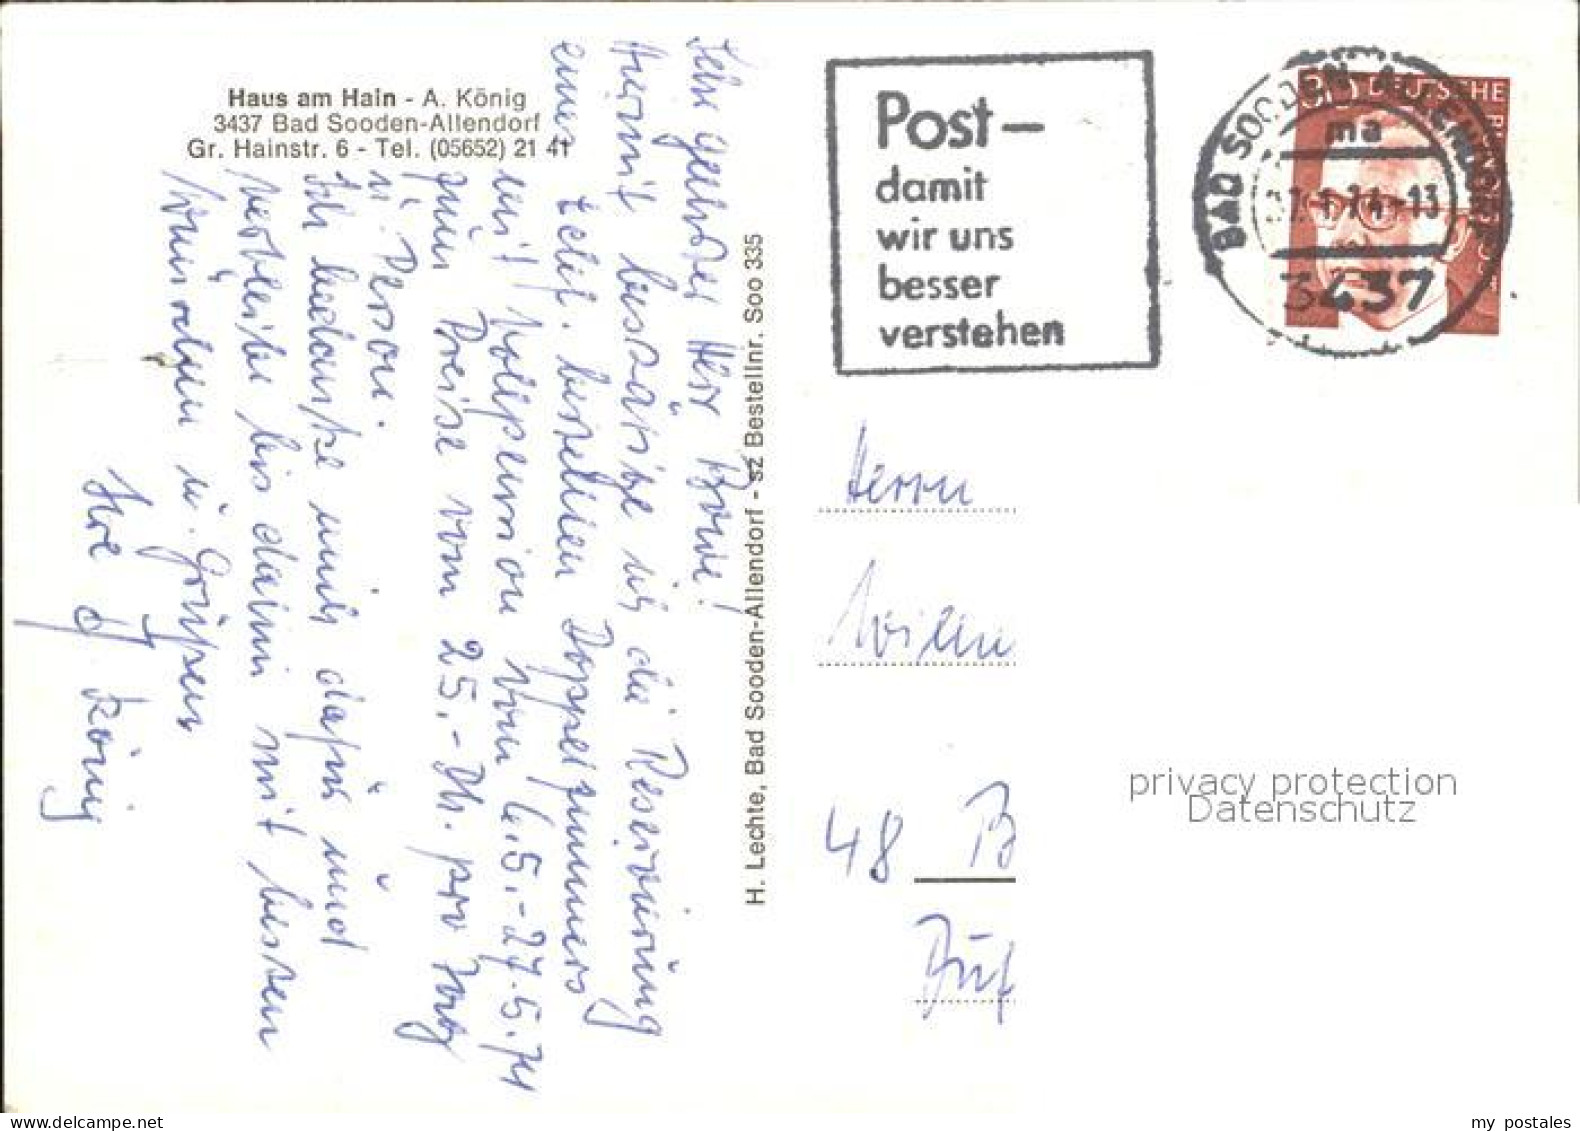 Haus am Hain - A. König
3437 Bad Sooden-Allendorf
Gr. Hainstr. 6 - Tel. (05652) 21 41
Sehr geehrter Herr Bowe!
Hiermit bestätige ich die Reservierung
eines telef. bestellten Doppelzimmers
mit Vollpension vom 6.5.-27.5.74
zum Preise von 25.- DM. pro Tag
u. Person.
Ich bedanke mich dafür und
verbleibe bis dahin mit besten
Wünschen u. Grüßen
Ihre A. König
H. Lechte, Bad Sooden-Allendorf - sz Bestellnr. Soo 335
Post–
damit
wir uns
besser
verstehen
BAD SOODEN-ALLENDORF
ma
1.74-13
3437
DEUTSCHE
Herrn
48 B
privacy protection
Datenschutz
www.delcampe.net
my postales